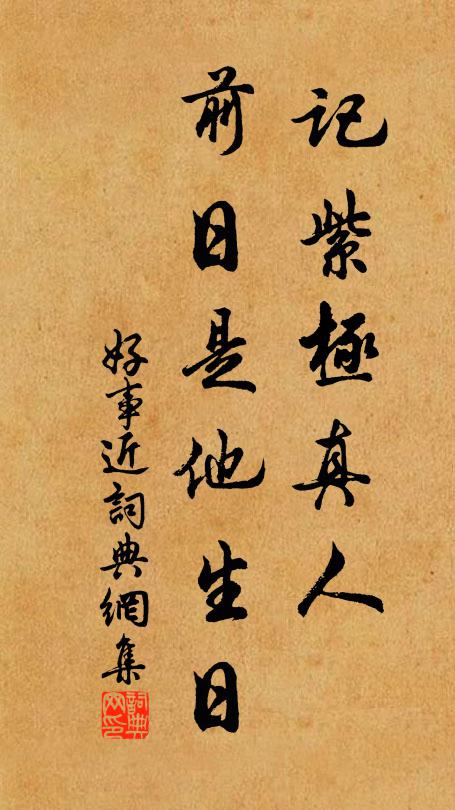 记紫極真人
前日是他生日
好事近詞典網集
詞典
网印